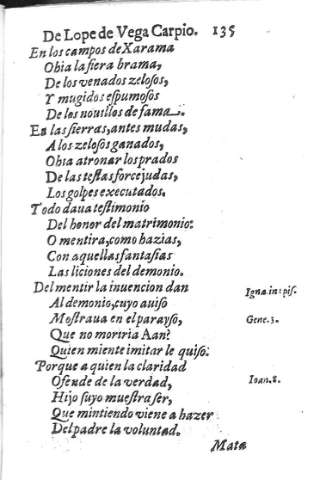 De Lope de Vega Carpio. 135
En los campos de Xarama
Ohia la fiera brama,
De los venados zelosos,
Y mugidos espumosos
De los nouillos de fama.
En las sierras, antes mudas,
A los zelosos ganados,
Ohia atronar los prados
De las testas forcejudas,
Los golpes executados.
Todo daua testimonio
Del honor del matrimonio:
O mentira, como hazias,
Con aquellas fantasias
Las liciones del demonio.
Del mentir la inuencion dan Igna. in epis.
Al demonio, cuyo auiso
Mostraua en el parayso, Gene. 3.
Que no moriria Aan?
Quien miente imitar le quiso.
Porque a quien la claridad
Ofende de la verdad, Ioan. 8.
Hijo suyo muestra ser,
Que mintiendo viene a hazer
Del padre la voluntad.
Mata